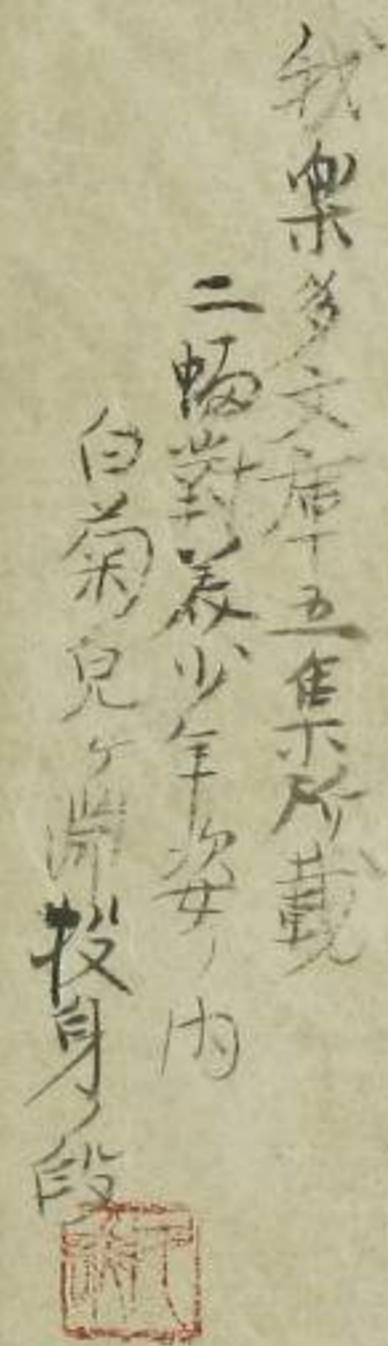 我楽多文庫十五集所載
二幅對美少年姿ノ内
白菊兒ヶ淵投身ノ段